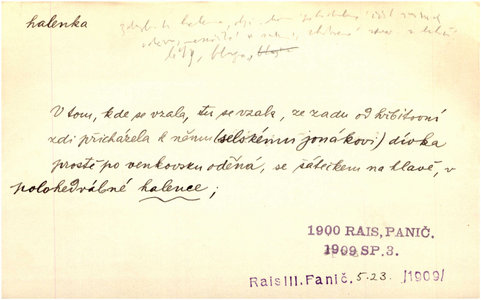 halenka
V tom, kde se vzala, tu se vzala, ze zadu od hřbitovní
zdi přicházela k němu (selskému jonákovi) dívka
prostě po venkovsku oděná, se šátečkem na hlavě, v
polohedvábné halence;
1900 RAIS, PANIČ.
1909 SP. 3.
Rais III. Panič. 5·23. /1909/